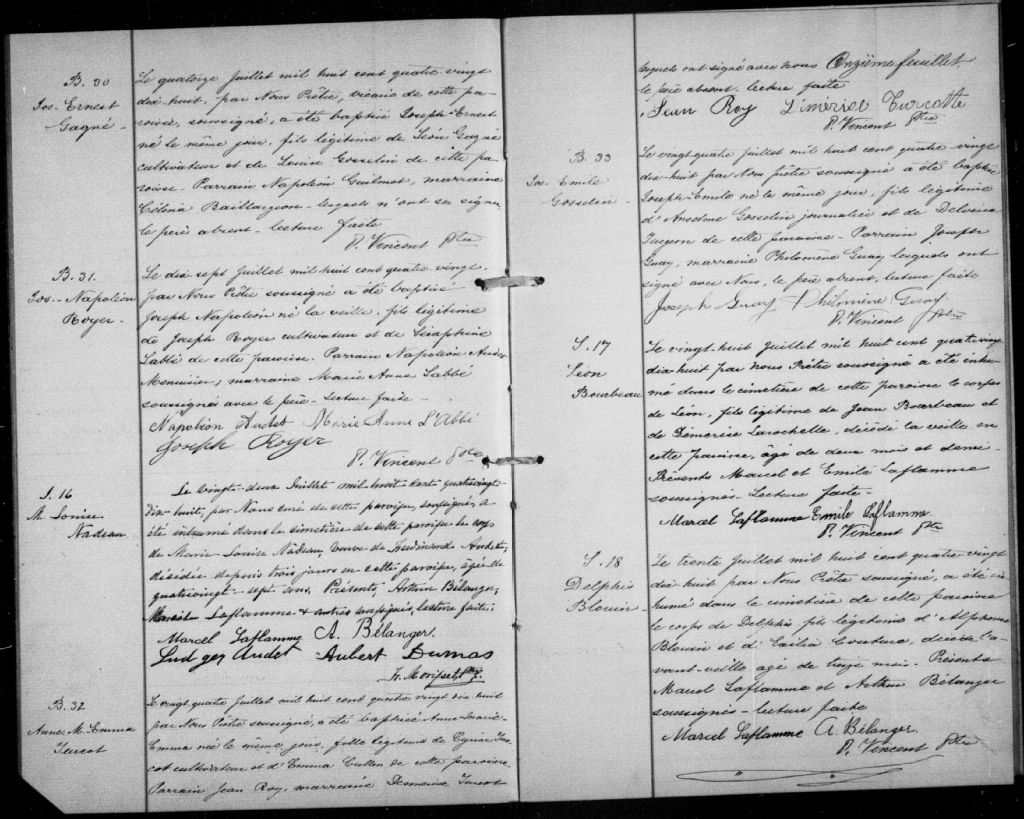 B. 30
Jos-Ernest
Gagné-
Le quatorze Juillet mil huit cent quatre vingt
dix-huit, par Nous Prêtre, vicaire de cette pa-
roisse, soussigné, a été baptisé Joseph-Ernest
né le même jour, fils légitime de Léon Gagné
cultivateur et de Louise Gosselin de cette pa-
roisse- Parrain Napoléon Guilmet, marraine
Célina Baillargeon- lesquels n'ont su signer
le père absent- lecture faite
P. Vincent ptre
B. 31.
Jos- Napoléon
Royer-
Le dix sept Juillet mil huit cent quatre vingt-
par Nous Prêtre soussigné a été baptisé
Joseph Napoléon né la veille, fils légitime
de Joseph Royer cultivateur et de Séraphine
Labbé de cette paroisse. Parrain Napoléon Audet
Menuisier; marraine Marie Anne Labbé
soussignés avec le père- Lecture faite-
Napoléon Audet Marie Anne L'Abbé
Joseph Royer
P. Vincent ptre
S. 16
M. Louise
Nadeau
Le vingt-deux Juillet mil huit cent quatrevingt-
dix-huit, par Nous curé de cette paroisse, soussigné, a
été inhumé dans le cimetière de cette paroisse le corps
de Marie-Louise Nadeau, veuve de Ferdinande Audet,
décédée depuis trois jours en cette paroisse, âgée de
quatrevingt-sept ans, Présents, Arthur Bélanger,
Marcel Laflamme & autres soussignés, lecture faite.
Marcel Laflamme A. Bélanger.
Ludger Audet Aubert Dumas
B. 32
Anne-M-Emma
Turcot
Le vingt quatre Juillet mil huit cent quatre vingt dix huit
par Nous Prêtre soussigné, a été baptisée Anne-Marie-
Emma née le même jour, fille légitime de Cyrine Tur-
cot cultivateur et d'Emma Cullen de cette paroisse
Parrain Jean Roy, marraine Démérise Turcot
lesquels ont signé avec nous Onzième feuillet
le père absent- lecture faite
Jean Roy Démérise Turcotte
P. Vincent ptre
B. 33
Jos- Emile
Gosselin-
Le vingt-quatre Juillet mil huit cent quatre vingt
dix-huit par Nous Prêtre soussigné a été baptisé
Joseph-Emile né le même jour, fils légitime
d'Anselme Gosselin journalier et de Delvina
Turgeon de cette paroisse- Parrain Joseph
Guay, marraine Philomène Guay lesquels ont
signé avec Nous, le père absent, lecture faite
Joseph Guay Philomène Guay
P. Vincent ptre
S. 17
Léon
Bourbeau
Le vingt-huit Juillet mil huit cent quatre vingt
dix huit par nous Prêtre soussigné a été inhu-
mé dans le cimetière de cette paroisse le corps
de Léon, fils légitime de Jean Bourbeau et
de Démérise Larochelle, décédé la veille en
cette paroisse, âgé de deux mois et demi-
Présents Marcel et Emile Laflamme
soussignés. Lecture faite-
Marcel Laflamme Emile Laflamme
P. Vincent ptre
S. 18
Delphis
Blouin-
Le trente Juillet mil huit cent quatre vingt
dix huit par Nous Prêtre soussigné, a été in-
humé dans le cimetière de cette paroisse
le corps de Delphis fils légitime d'Alphonse
Blouin et d'Exilia Couture, décédé l'a-
vant-veille agé de treize mois- Présents
Marcel Laflamme et Arthur Bélanger
soussignés- lecture faite
Marcel Laflamme A. Bélanger.
P. Vincent ptre